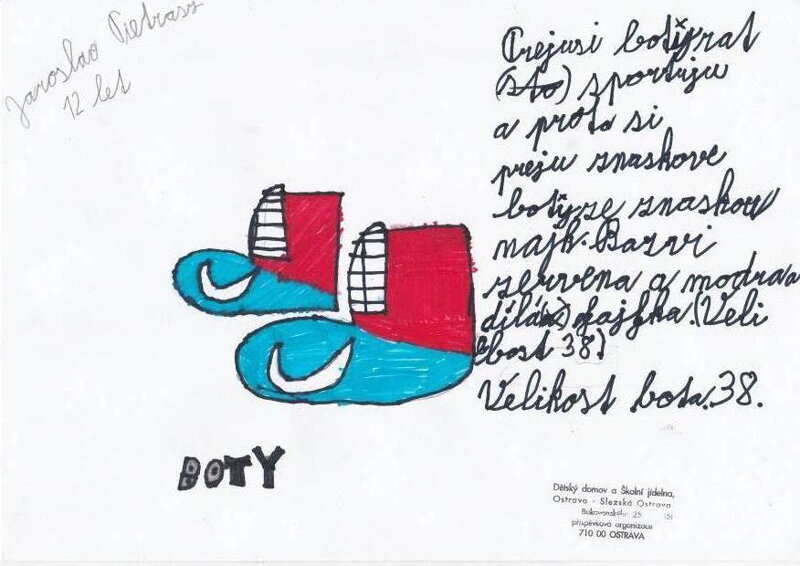 Jaroslav Pietrasz
12 let
Prejusi botyrat
(sto) sportuju
a proto si
preju snaskove
boty se snaskou
najk. Barvi
servena a modra a
díla fajfka. (Veli
kost 38)
Velikost bota. 38.
BOTY
Dětský domov a Školní jídelna,
Ostrava - Slezská Ostrava
Bukovanského 25
příspěvková organizace
710 00 OSTRAVA